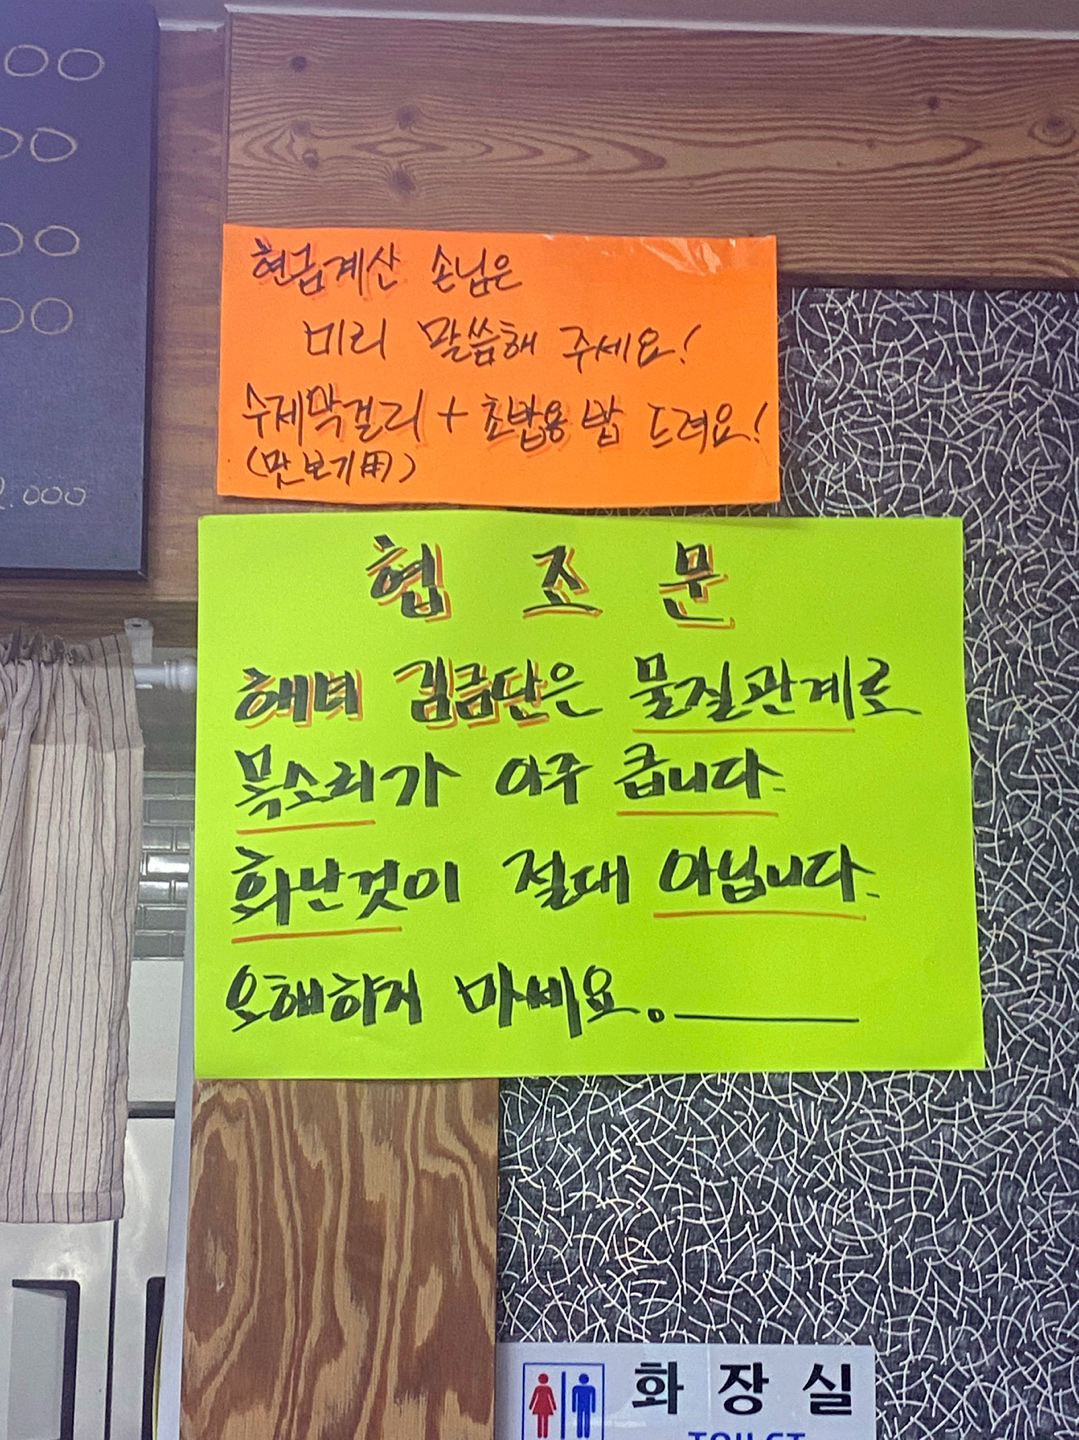 00
00
00
00
2.000
현금계산 손님은
미리 말씀해 주세요!
수제막걸리 + 초밥용 밥 드려요!
(맛보기用)
협 조 문
해녀 김금단은 물질관계로
목소리가 아주 큽니다.
화난것이 절대 아닙니다.
오해하지 마세요.
화장실
TOILET